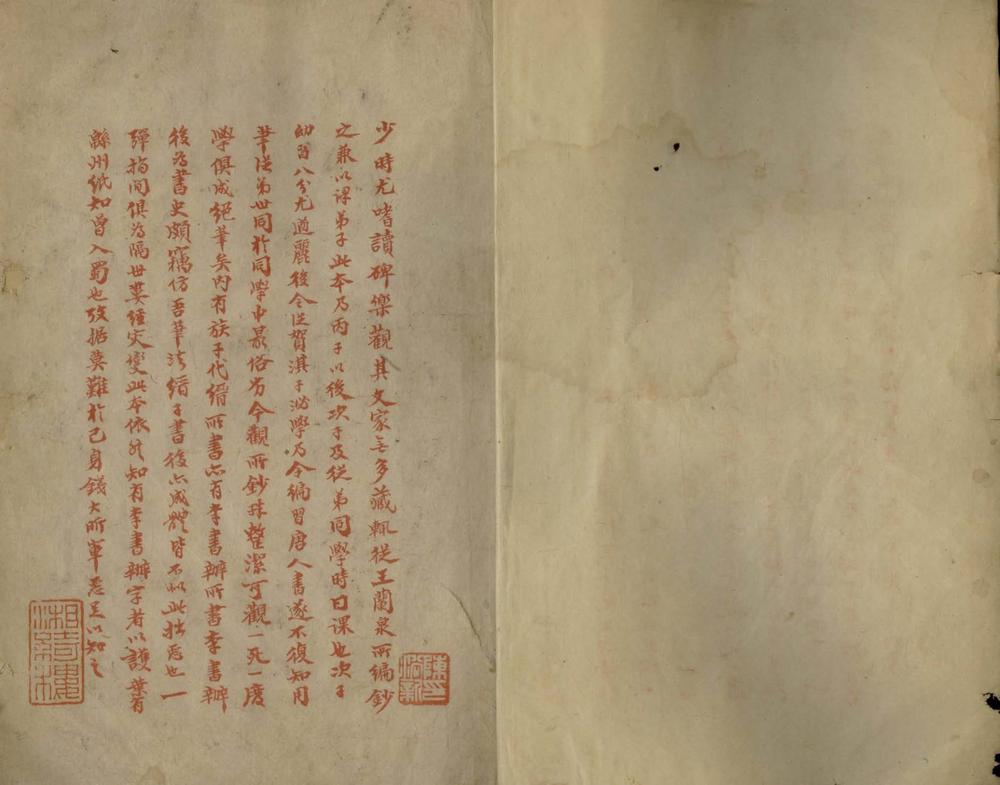 少時尤嗜讀碑樂觀其文家無多藏輒從王蘭泉所編鈔
之兼以課弟子此本乃丙子以後次子及從弟同學時日課也次子
幼習八分尤遒麗後令從賀淇子泌學乃令編習唐人書遂不復知用
筆從弟世同於同學中最俗劣今觀所鈔殊整潔可觀一死一廢
學俱成絕筆矣內有族子代縉所書亦有李書辦所書李書辦
後為書史頗竊仿吾筆法縉子書後亦成體皆不似此拙惡也一
彈指間俱為隔世婁經灾變此本依然知有李書辦字者以護葉有
緜州紙知曾入蜀也攷据莫難於己身錢大昕輩惡足以知之
湘綺樓